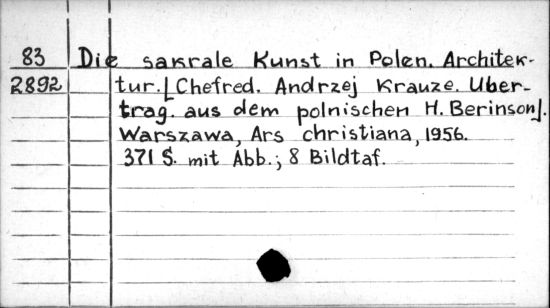 83 Die sakrale Kunst in Polen. Architek-
2892 tur. [Chefred. Andrzej Krauze. Uber-
trag. aus dem polnischen H. Berinson].
Warszawa, Ars christiana, 1956.
371 S. mit Abb.; 8 Bildtaf.